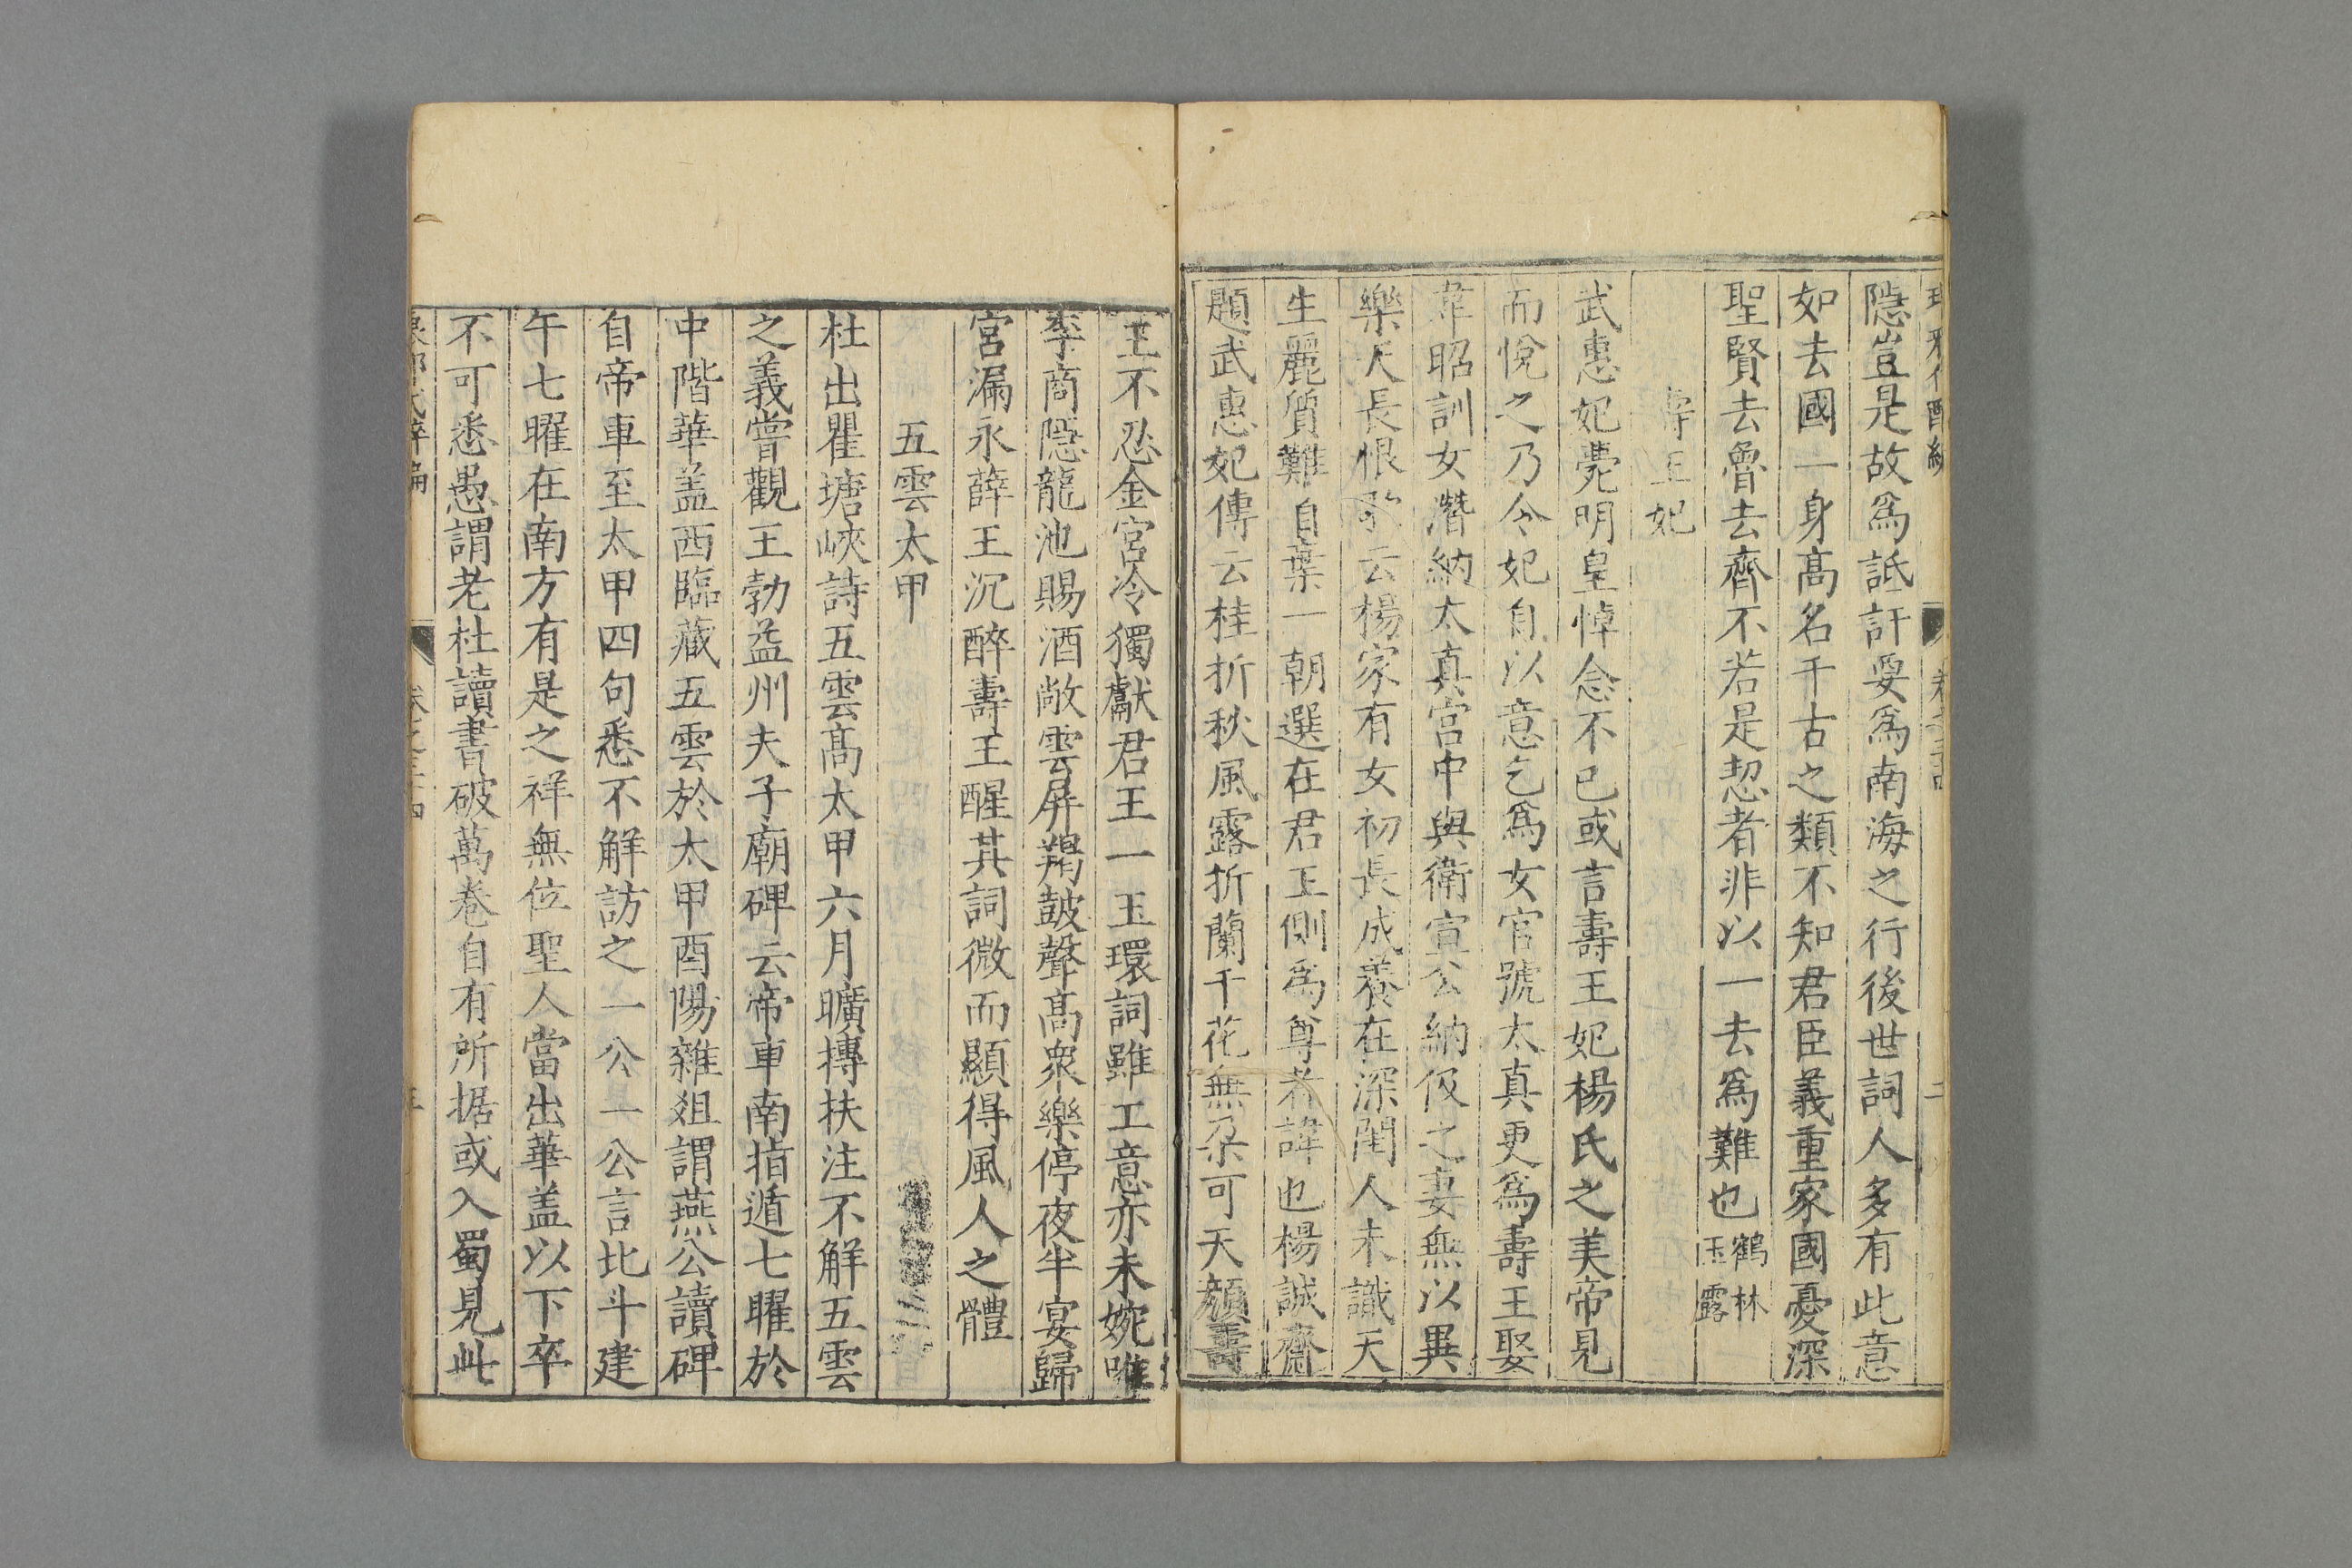 隱豈是故爲詆訐要爲南海之行後世詞人多有此意
如去國一身高名千古之類不知君臣義重家國憂深
聖賢去魯去齊不若是恝者非以一去爲難也鶴林玉露
壽王妃
武惠妃薨明皇悼念不已或言壽王妃楊氏之美帝見
而悅之乃令妃自以意乞爲女官號太真更爲壽王娶
韋昭訓女潛納太真宮中與衛宣公納伋之妻無以異
樂天長恨歌云楊家有女初長成養在深閨人未識天
生麗質難自棄一朝選在君王側爲尊者諱也楊誠齋
題武惠妃傳云桂折秋風露折蘭千花無朶可天顏壽
王不忍金宮冷獨獻君王一玉環詞雖工意亦未婉唯
李商隱龍池賜酒敞雲屏羯鼓聲高衆樂停夜半宴歸
宮漏永薛王沉醉壽王醒其詞微而顯得風人之體
五雲太甲
杜出瞿塘峽詩五雲高太甲六月曠摶扶注不解五雲
之義嘗觀王勃益州夫子廟碑云帝車南指遁七曜於
中階華盖西臨藏五雲於太甲酉陽雜俎謂燕公讀碑
自帝車至太甲四句悉不解訪之一公一公言北斗建
午七曜在南方有是之祥無位聖人當出華盖以下卒
不可悉愚謂老杜讀書破萬卷自有所据或入蜀見此